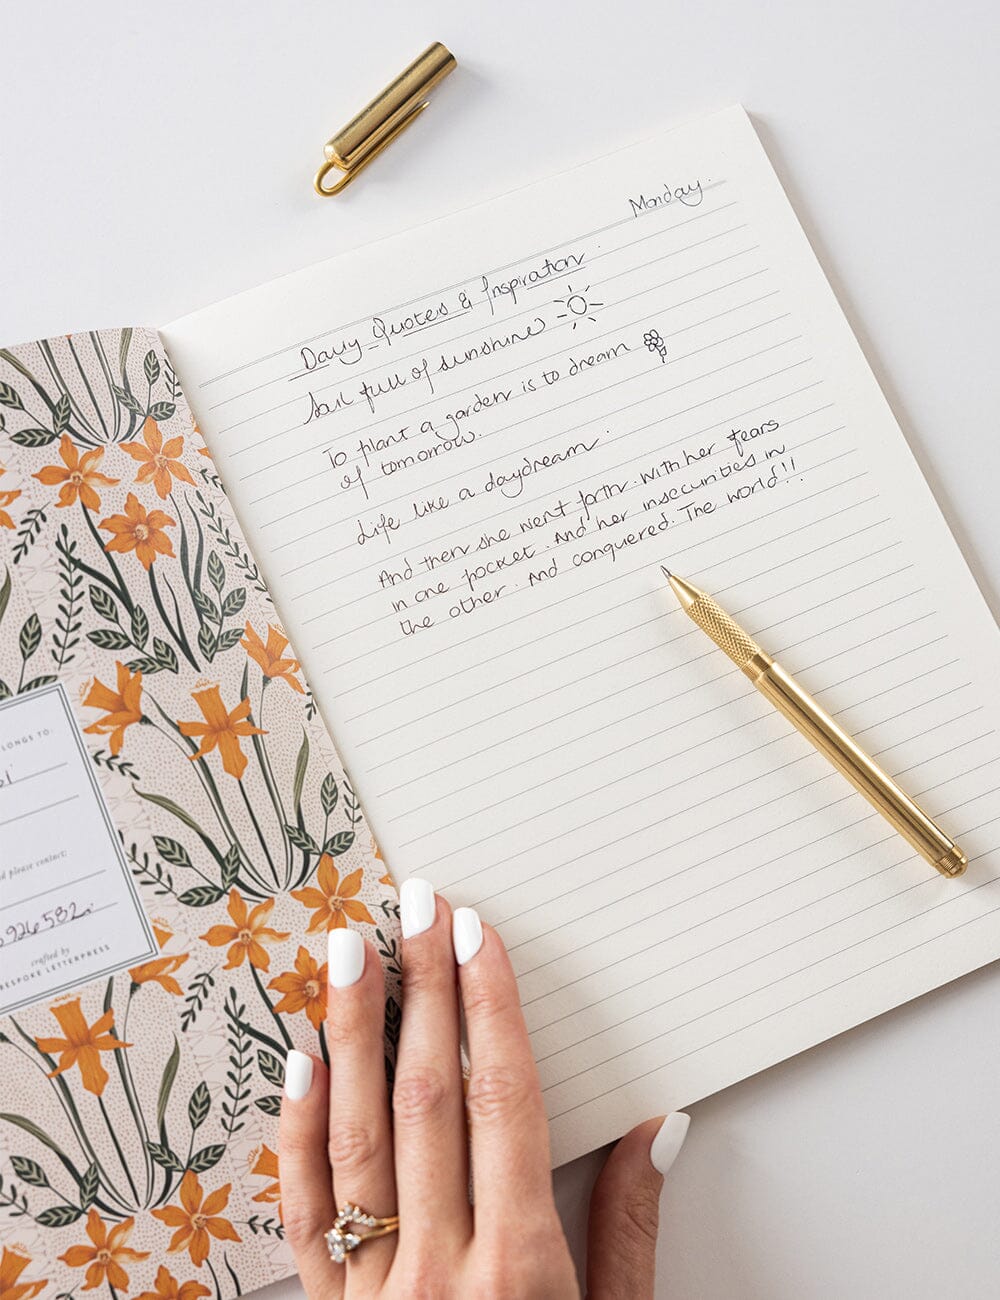 LONGS TO:
please contact:
926582
crafted by
BESPOKE LETTERPRESS
Monday.
Daily Quotes & Inspiration
Soul full of sunshine
To plant a garden is to dream
of tomorrow.
Life like a daydream.
And then she went forth. With her fears
in one pocket. And her insecurities in
the other. And conquered. The world!!